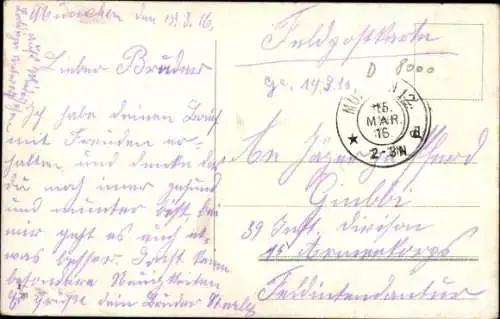 München den 13.3.16.
Lieber Bruder
Ich habe deinen Brief
mit Freuden er-
halten und denke das
du noch immer gesund
und munter bist, bei
mir geht es auch et-
was besser. Sonst keine
besondere Neuigkeiten
Es Grüßt dein Bruder
Feldpostkarte
D 8000
14.3.16
MÜNCHEN 12.
15.
MÄR.
16.
2-3N
An Jäger
39 Inft. Division
15 Armeekorps
Feldintendantur